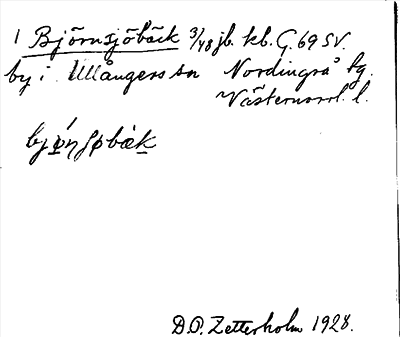 1 Björnsjöbäck 3/48 jb. kb. G. 69 SV.
by i Ullångers sn Nordingrå tg.
Västernorrl. l.
D.O. Zetterholm 1928.